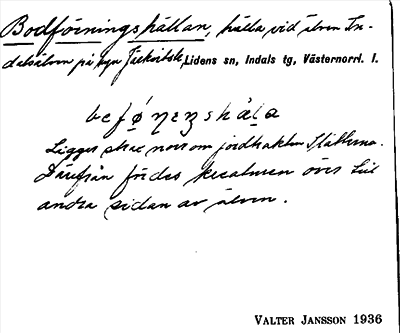 Bodförningshällan, hälla vid älven In-
dalsälven på byn Järkvitsle, Lidens sn, Indals tg, Västernorrl. l.
Ligger strax norr om jordtrakten Slåtterna.
Därifrån fördes kreaturen över till
andra sidan av älven.
VALTER JANSSON 1936